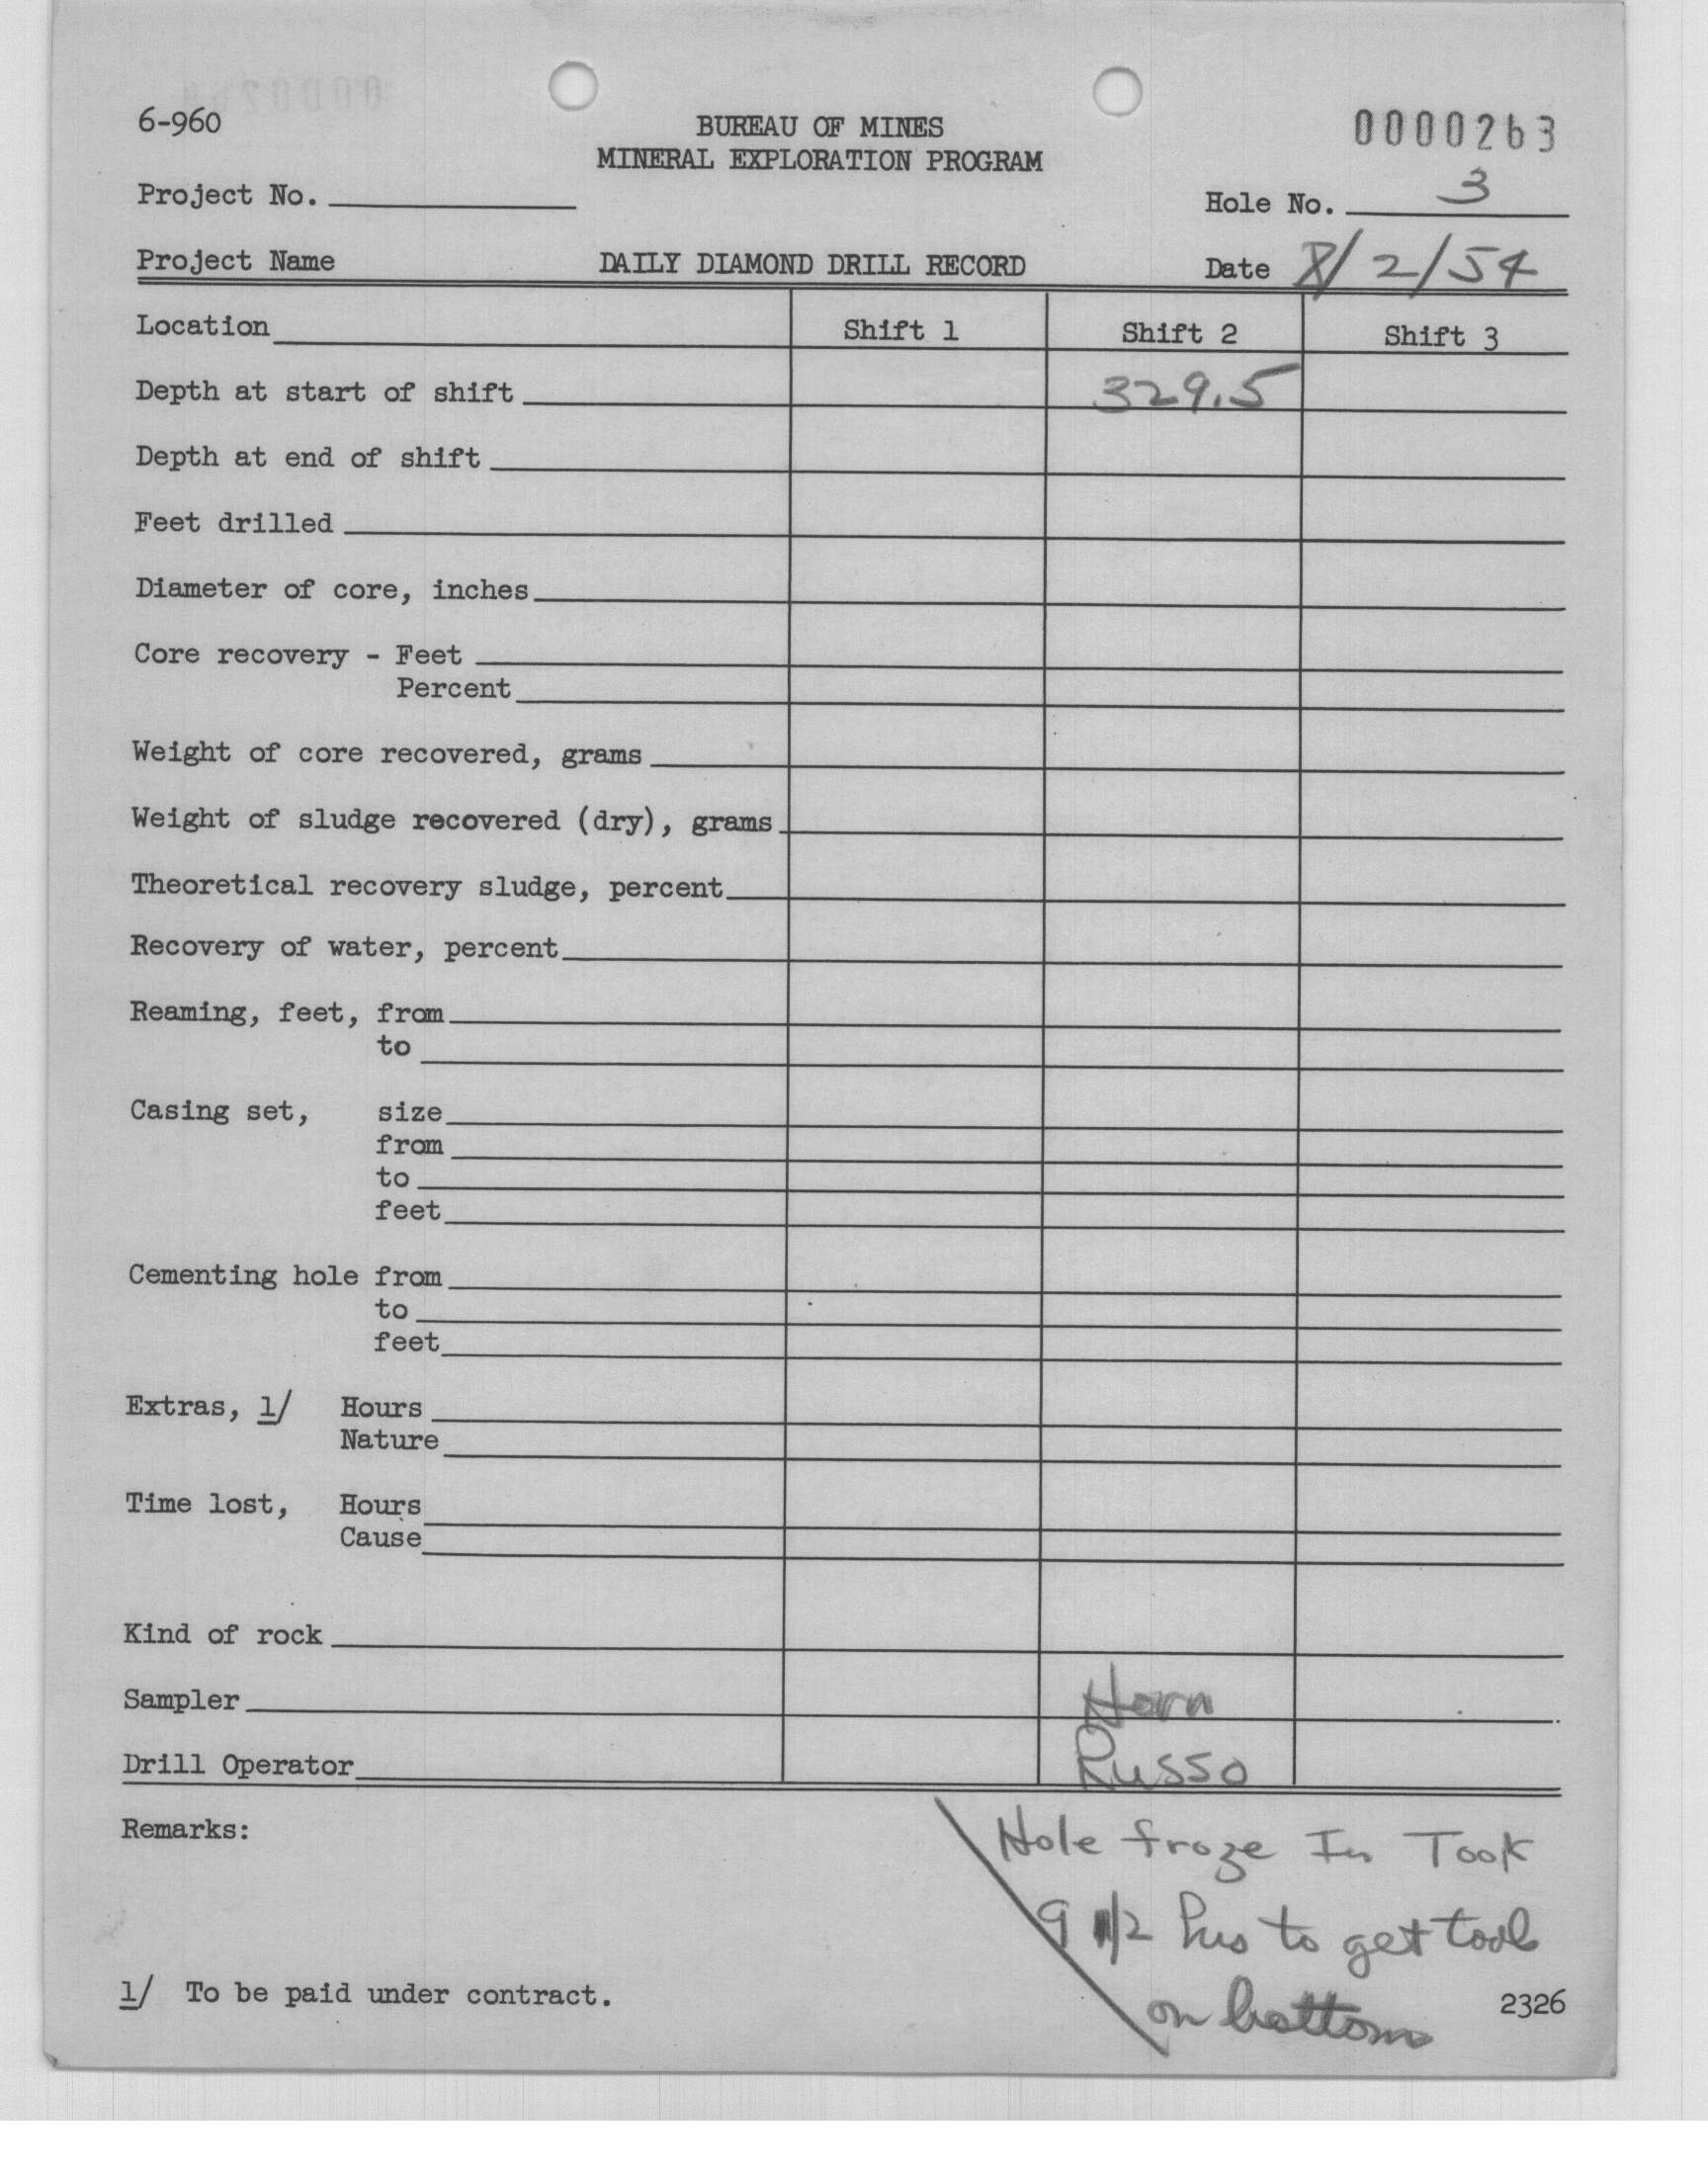 6-960
BUREAU OF MINES
0000263
MINERAL EXPLORATION PROGRAM
Project No.
Hole No. 3
Project Name
DAILY DIAMOND DRILL RECORD
Date 8/2/54
Location
Shift 1
Shift 2
Shift 3
Depth at start of shift
329.5
Depth at end of shift
Feet drilled
Diameter of core, inches
Core recovery - Feet
Percent
Weight of core recovered, grams
Weight of sludge recovered (dry), grams
Theoretical recovery sludge, percent
Recovery of water, percent
Reaming, feet, from
to
Casing set, size
from
to
feet
Cementing hole from
to
feet
Extras, 1/ Hours
Nature
Time lost, Hours
Cause
Kind of rock
Sampler
Horn
Drill Operator
Russo
Remarks:
Hole froze In Took
9 1/2 hrs to get tools
on bottom
1/ To be paid under contract.
2326